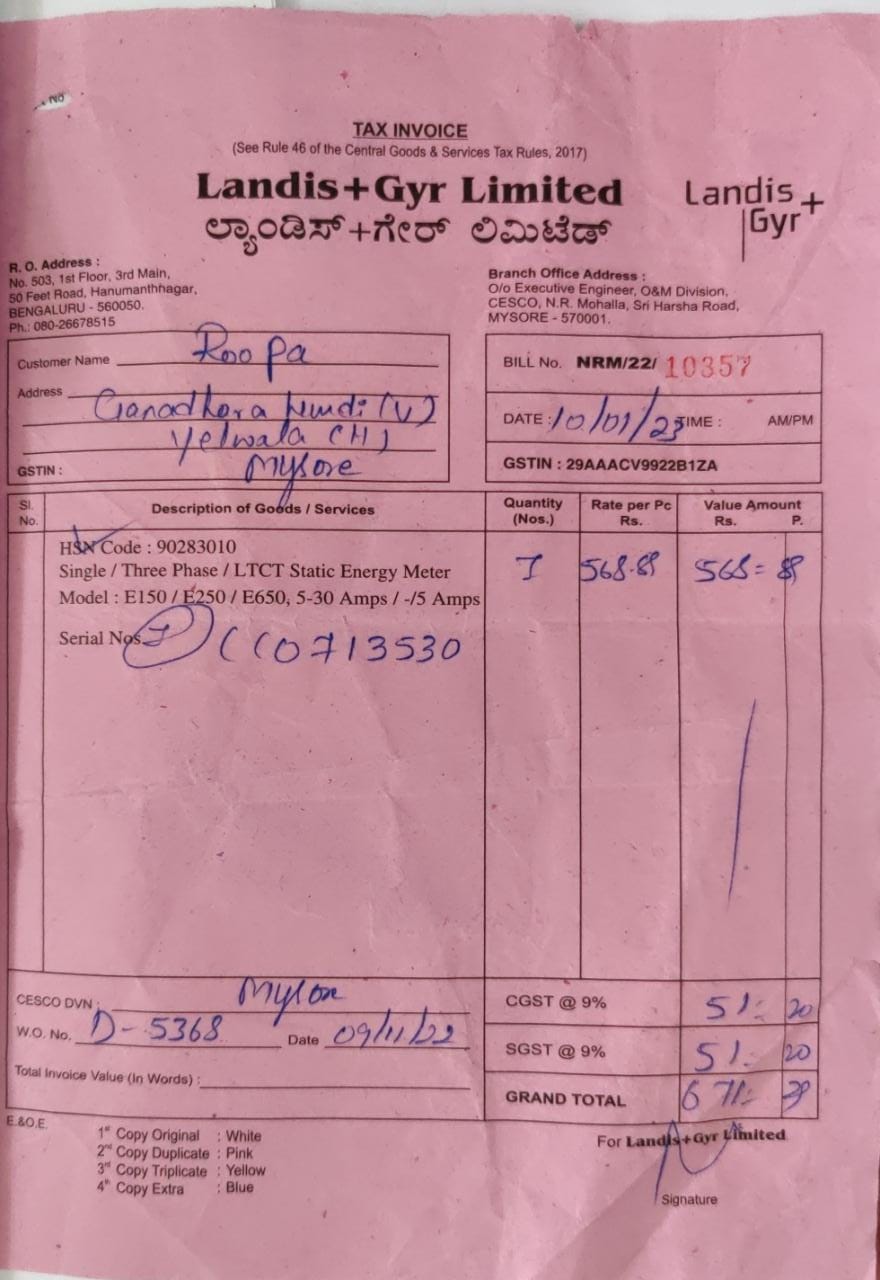 No
TAX INVOICE
(See Rule 46 of the Central Goods & Services Tax Rules, 2017)
Landis+Gyr Limited
ಲ್ಯಾಂಡಿಸ್+ಗೇರ್ ಲಿಮಿಟೆಡ್
Landis+
Gyr
R. O. Address :
No. 503, 1st Floor, 3rd Main,
50 Feet Road, Hanumanthhagar,
BENGALURU - 560050.
Ph.: 080-26678515
Branch Office Address :
O/o Executive Engineer, O&M Division,
CESCO, N.R. Mohalla, Sri Harsha Road,
MYSORE - 570001.
Customer Name Roopa
Address
Yelwala (H)
Mysore
GSTIN :
BILL No. NRM/22/ 10357
DATE : 10/01/23 TIME : AM/PM
GSTIN : 29AAACV9922B1ZA
Sl. No. Description of Goods / Services Quantity (Nos.) Rate per Pc Rs. Value Amount Rs. P.
HSN Code : 90283010
Single / Three Phase / LTCT Static Energy Meter 1 568.89 568= 89
Model : E150 / E250 / E650, 5-30 Amps / -/5 Amps
Serial Nos. 0713530
CESCO DVN : Mysore
W.O. No. D-5368 Date 09/11/22
Total Invoice Value (In Words) :
CGST @ 9% 51= 20
SGST @ 9% 51= 20
GRAND TOTAL 671=
E.&O.E.
1st Copy Original : White
2nd Copy Duplicate : Pink
3rd Copy Triplicate : Yellow
4th Copy Extra : Blue
For Landis+Gyr Limited
Signature